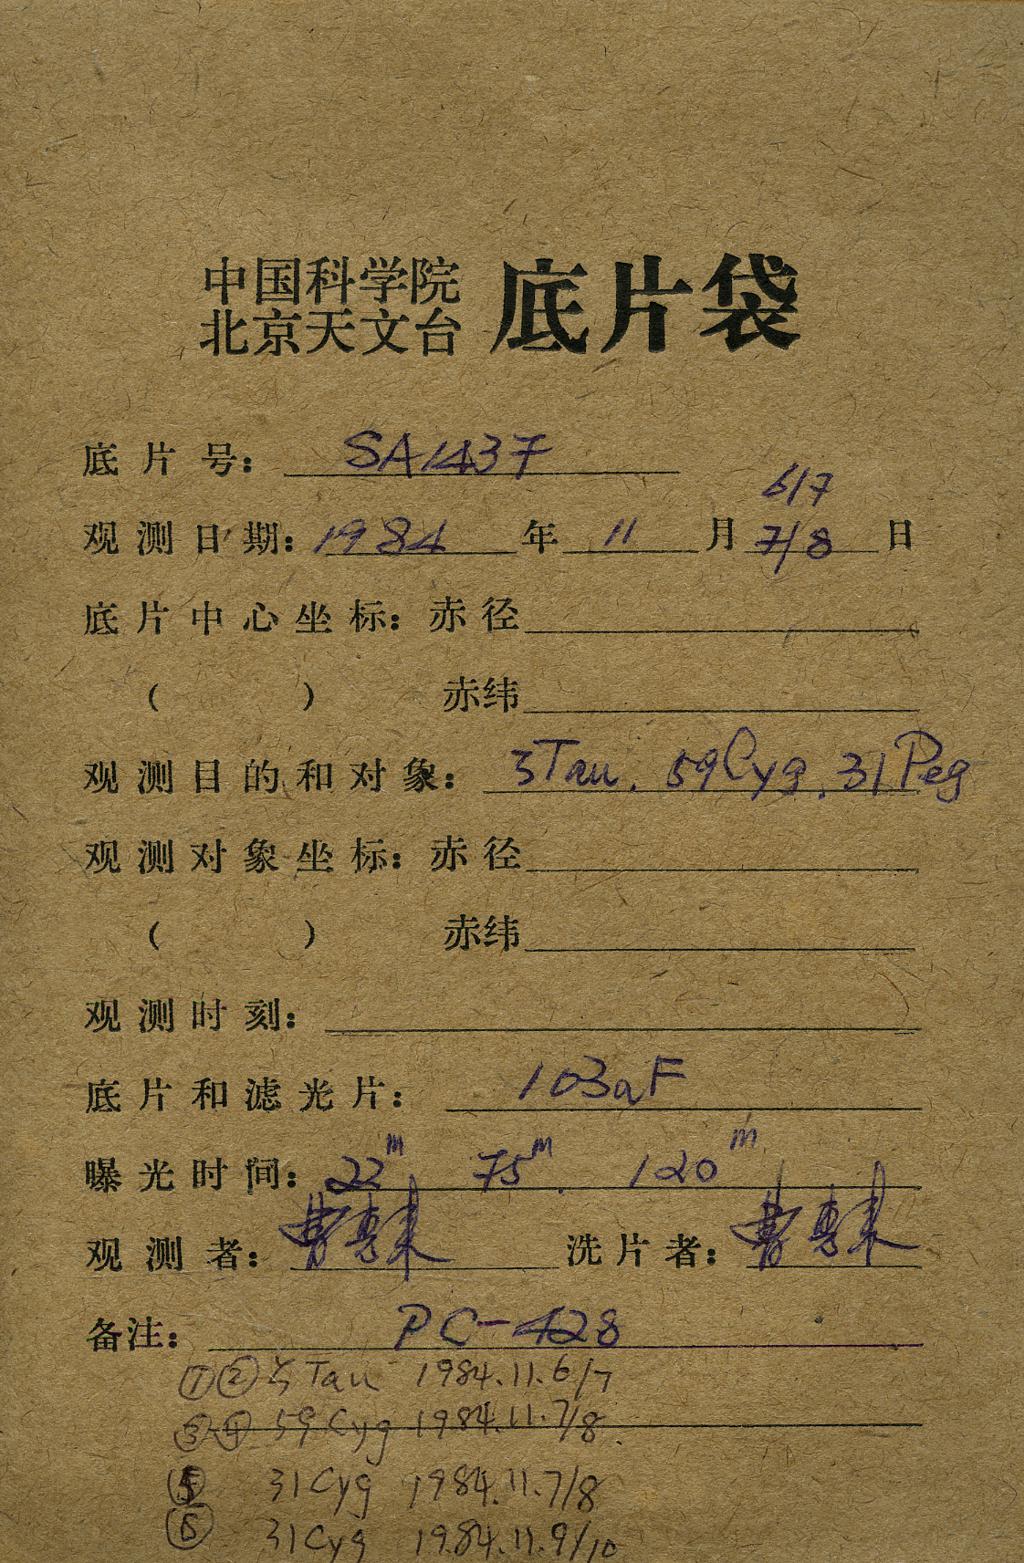 中国科学院
北京天文台 底片袋
底片号: SA1437
6/7
观测日期: 1984 年 11 月 7/8 日
底片中心坐标: 赤径
( ) 赤纬
观测目的和对象: ζTau. 59Cyg. 31Peg
观测对象坐标: 赤径
( ) 赤纬
观测时刻:
底片和滤光片: 103aF
曝光时间: 22m 75m. 120m
观测者: 曹惠来 洗片者: 曹惠来
备注: PC-428
①② ζTau 1984.11.6/7
③④ 59Cyg 1984.11.7/8.
⑤ 31Cyg 1984.11.7/8
⑥ 31Cyg 1984.11.9/10